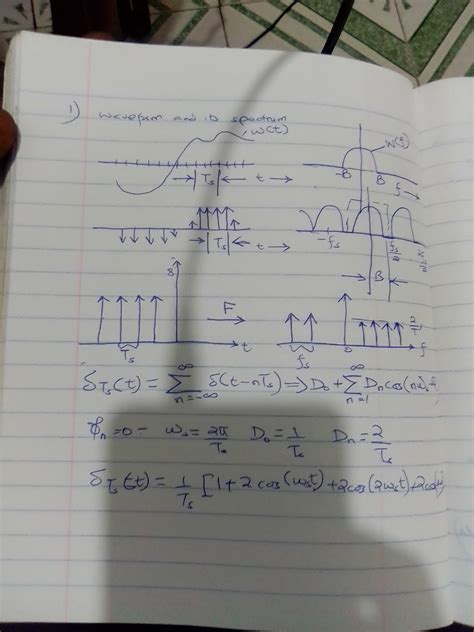 1) waveform and its spectrum
w(t)
W(f)
-B B f →
→ | Ts | ← t →
-fs fs/2
→ | Ts | ← t → → B ←
8
F
→
2/T
Ts t fs 0 f
δTs(t) = ∞Σn=-∞ δ(t-nTs) ⇒ D₀ + ∞Σn=1 Dn cos(nω
ϕn = 0 - ωs = 2π/Ts D₀ = 1/Ts Dn = 2/Ts
δTs(t) = 1/Ts [1 + 2 cos(ωst) + 2cos(2ωst) + 2cos